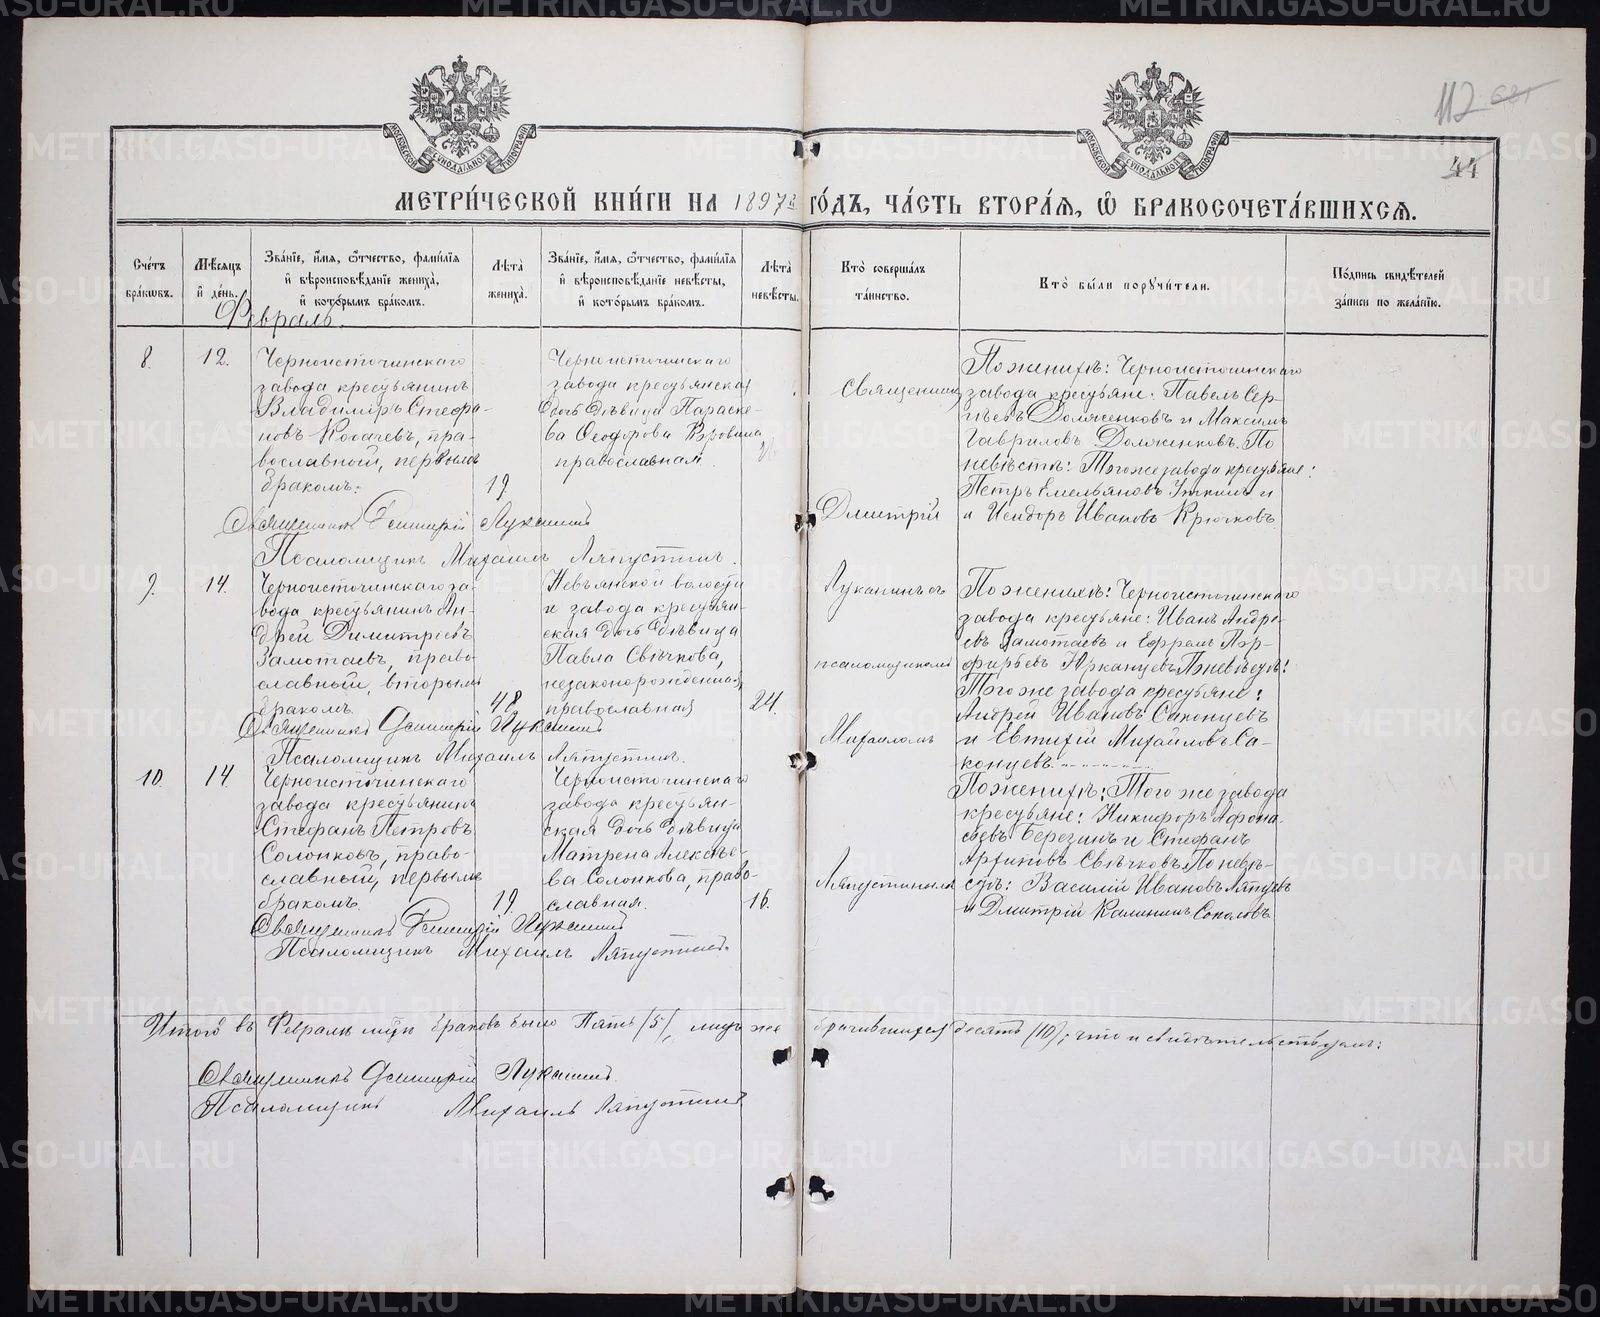 112 681
44
МЕТРИ́ЧЕСКОЙ КНИ́ГИ НА 1897й ГО́ДЪ, ЧА́СТЬ ВТОРА́Я, Ѡ҆ БРАКОСОЧЕТА́ВШИХСЯ.
Сче́тъ бра́кωвъ.
Мѣ́сяцъ и҆ де́нь.
Зва́нїе, и҆́мя, ѻ҆́тчество, фами́лїя и҆ вѣроисповѣ́данїе жениха̀, и҆ кото́рымъ бра́комъ.
Лѣ́та жениха̀.
Зва́нїе, и҆́мя, ѻ҆́тчество, фами́лїя и҆ вѣроисповѣ́данїе невѣ́сты, и҆ кото́рымъ бра́комъ.
Лѣ́та невѣ́сты.
Кто̀ соверша́лъ та́инство.
Кто̀ бы́ли пору́чители.
По́дпись свидѣ́телей за́писи по жела́нїю.
Февраль.
8. 12.
Черноисточинскаго
завода крестьянинъ
Владимiръ Стефа-
новъ Косачевъ, пра-
вославный, первымъ
бракомъ.
19.
Черноисточинскаго
завода крестьянская
дочь дѣвица Параске-
ва Ѳеодорова
православная.
Священникъ
Димитрiй
Лукинъ съ
псаломщикомъ
Михаиломъ
Ляпустинымъ
По женихѣ: Черноисточинскаго
завода крестьяне: Павелъ Сер-
гѣевъ Долженковъ и Максимъ
Гавриловъ Долженковъ. По
невѣстѣ: Того же завода крестьяне:
Петръ Емельяновъ Уткинъ и
и Исидоръ Ивановъ Крючковъ
Священникъ Димитрiй Лукинъ
Псаломщикъ Михаилъ Ляпустинъ.
9. 14.
Черноисточинскаго за-
вода крестьянинъ Ан-
дрей Димитрiевъ
Замотаевъ, право-
славный, вторымъ
бракомъ.
48
Невьянской волости
и завода крестьян-
ская дочь дѣвица
Павла Свѣчкова,
незаконорожденная,
православная
24.
По женихѣ: Черноисточинскаго
завода крестьяне: Иванъ Андре-
евъ Замотаевъ и Ефремъ Пор-
фирьевъ Юрканцевъ. По невѣстѣ:
Того же завода крестьяне:
Андрей Ивановъ Саконцевъ
и Евтихiй Михайловъ Са-
концевъ.
Священникъ Димитрiй Лукинъ
Псаломщикъ Михаилъ Ляпустинъ.
10. 14.
Черноисточинскаго
завода крестьянинъ
Стефанъ Петровъ
Солонковъ, право-
славный, первымъ
бракомъ.
19.
Черноисточинскаго
завода крестьян-
ская дочь дѣвица
Матрена Алексѣе-
ва Солонкова, право-
славная.
16.
По женихѣ: Того же завода
крестьяне: Никифоръ Афона-
сьевъ Березинъ и Стефанъ
Архиповъ Свѣчковъ. По невѣ-
стѣ: Василiй Ивановъ Ляпцевъ
и Дмитрiй Калининъ Соколовъ
Священникъ Димитрiй Лукинъ
Псаломщикъ Михаилъ Ляпустинъ.
Итого въ Февралѣ м-цѣ браковъ было Пять (5), лицъ же брачившихся десять (10); что и свидѣтельствуемъ:
Священникъ Димитрiй Лукинъ.
Псаломщикъ Михаилъ Ляпустинъ
METRIKI.GASO-URAL.RU